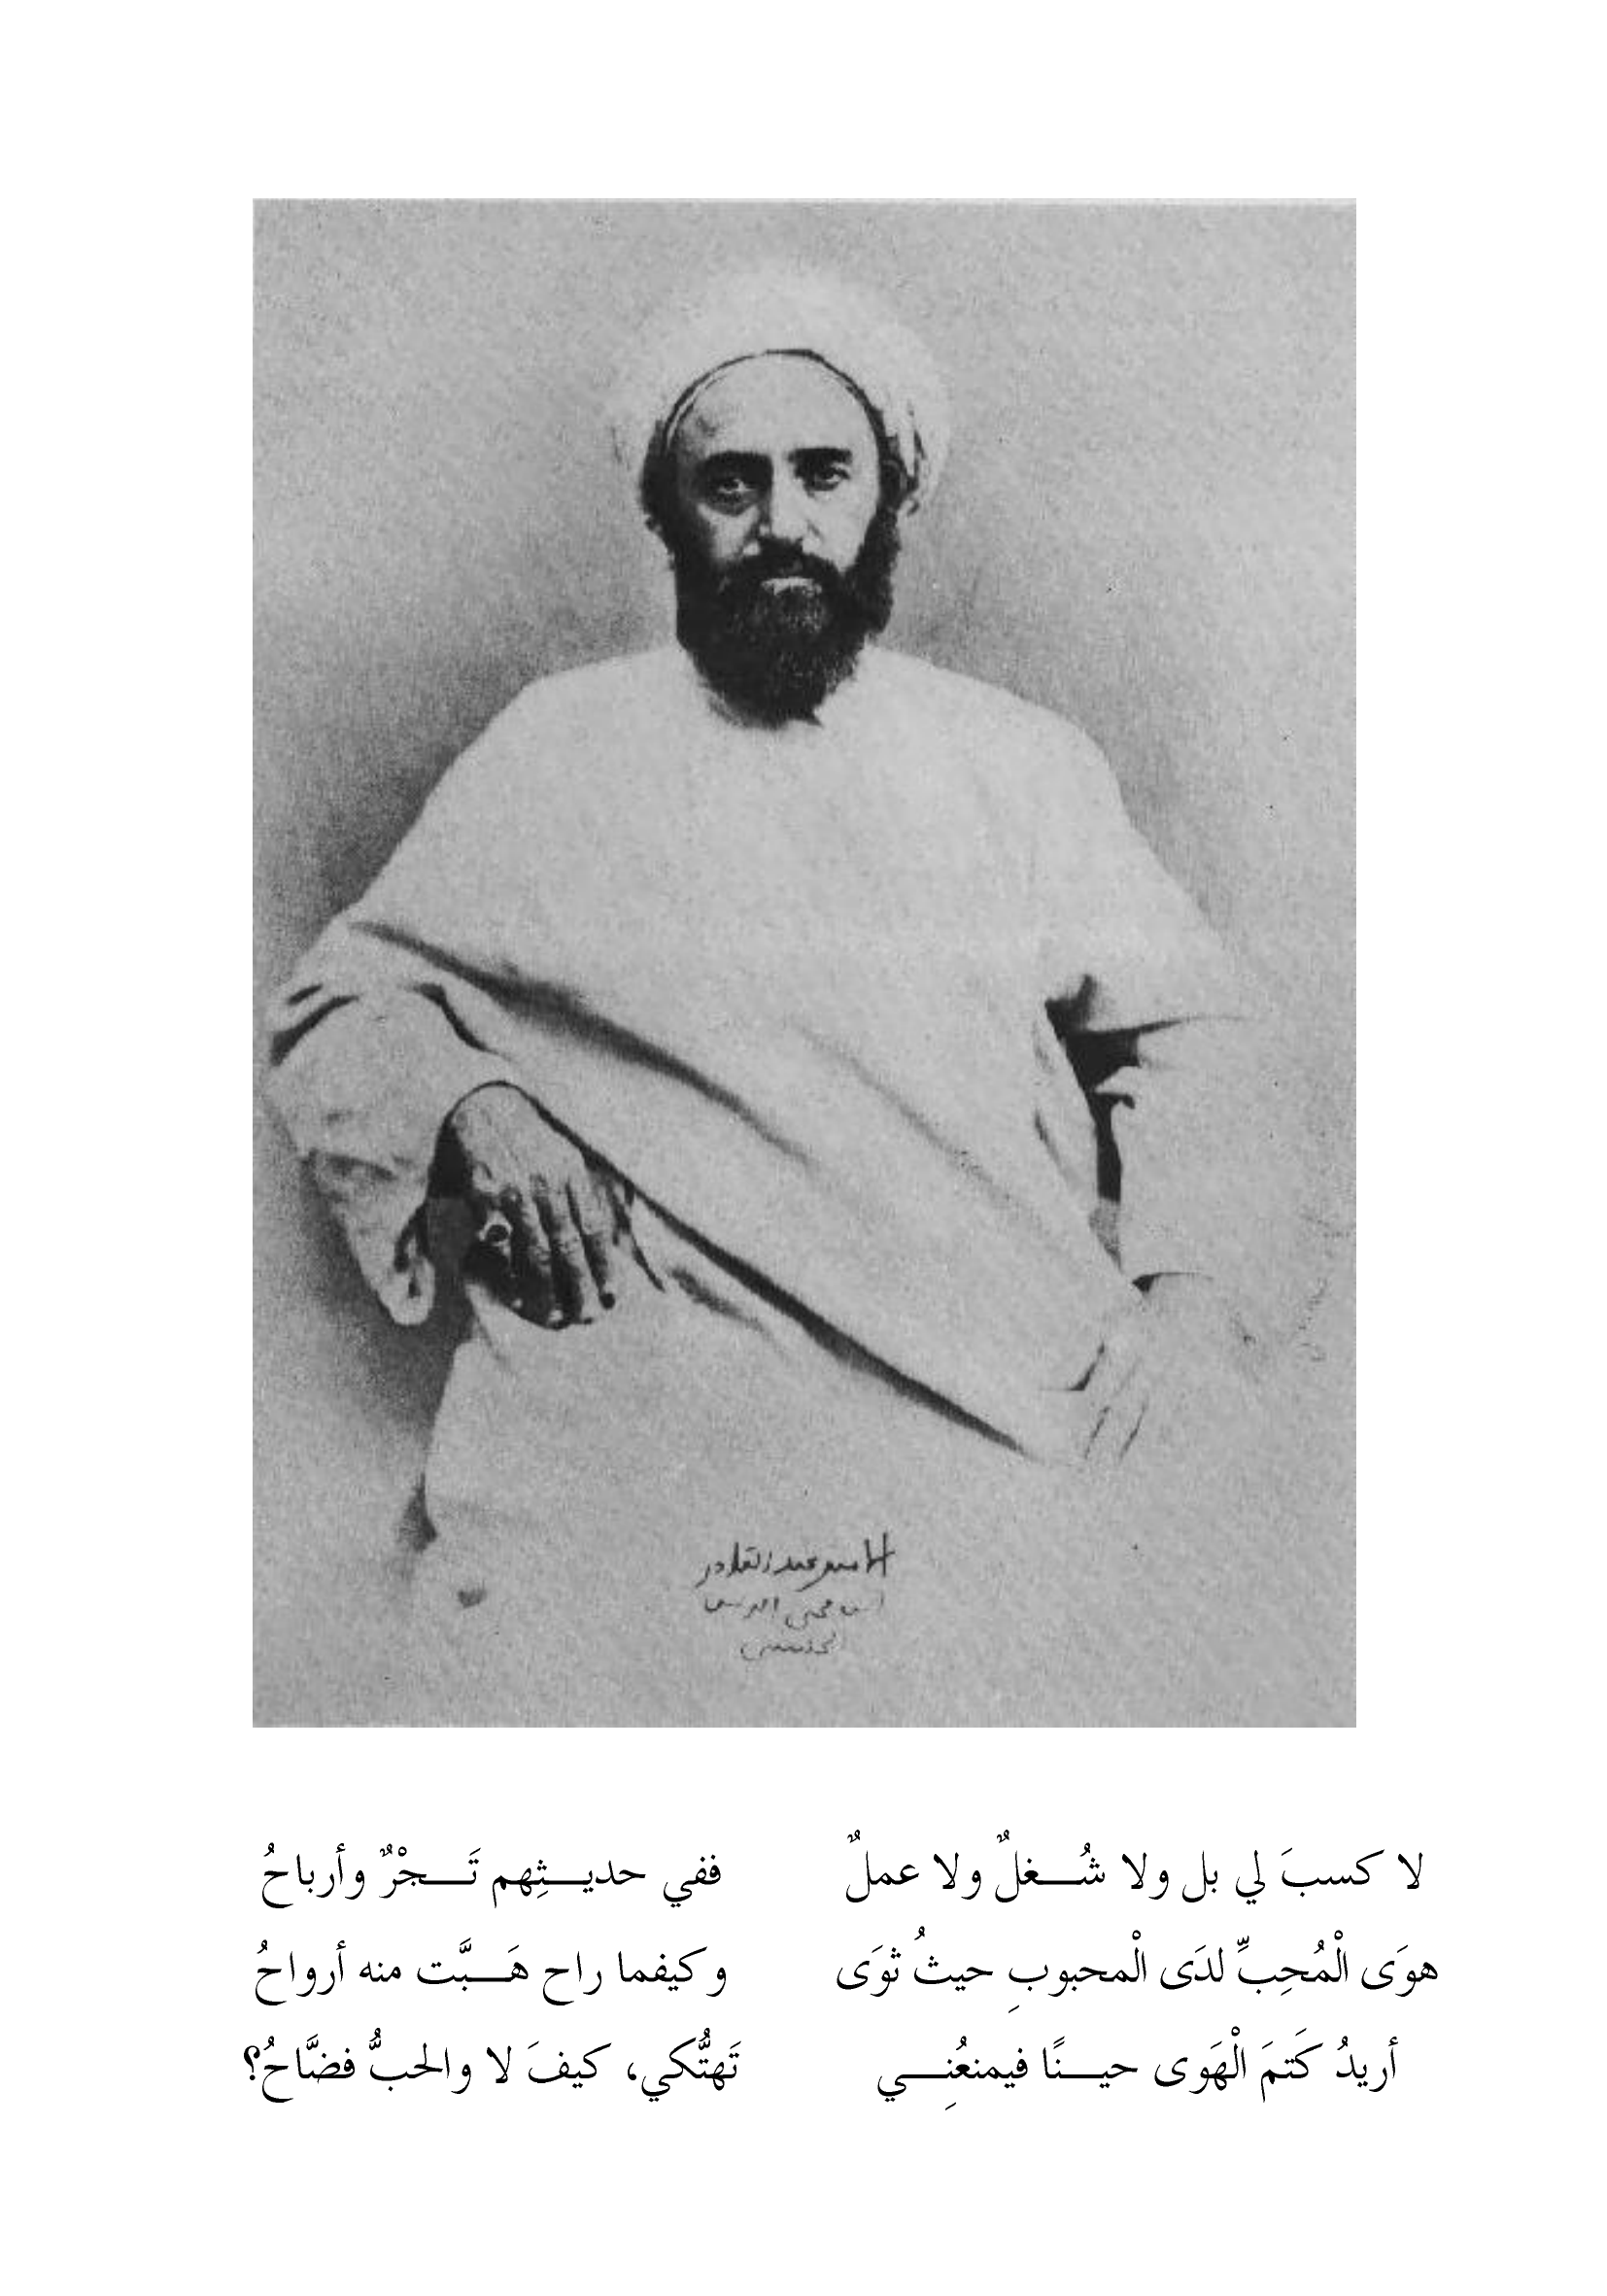 الامير عبد القادر
ابن محيي الدين
الحسني
لا كسبَ لي بل ولا شُــغلٌ ولا عملٌ ففي حديــثِهم تَــجْرٌ وأرباحُ
هوَى الْمُحِبِّ لدَى الْمحبوبِ حيثُ ثوَى وكيفما راح هَــبَّت منه أرواحُ
أريدُ كَتمَ الْهَوى حيــنًا فيمنعُنِــي تَهتُّكي، كيفَ لا والحبُّ فضَّاحُ؟